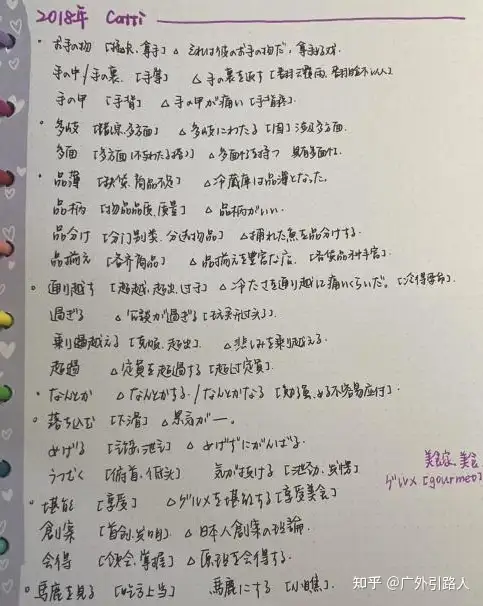 2018年 Catti
お手の物 [擅长、拿手] △ これは彼のお手の物だ, 拿手好戏.
手の中/手の裏. [手掌] △ 手の裏を返す [翻云覆雨、翻脸不认人]
手の甲 [手背] △ 手の甲が痛い [手背疼].
多岐 [错综、多方面] △ 多岐にわたる [因] 涉及多方面.
多面 [多方面 △ 多面性を持つ 具有多面性.
品薄 [缺货、商品不足] △ 冷蔵庫は品薄となった.
品柄 [物品品质、质量] △ 品柄がいい.
品分け [分门别类、分选物品] △ 捕れた魚を品分けする.
品揃え [各齐商品] △ 品揃え豊富な店.
通り越す [超越、超出、过于] △ 冷たさを通り越し痛いくらいだ. [冷得要命]
過ぎる △ 冗談が過ぎる [玩笑开过头].
乗り越える [克服、超出] △ 悲しみを乗り越える.
超過 △ 定員を超過する [超过定员].
なんとか △ なんとかする./なんとかなる
落ち込む [下滑] △ 景気が一.
めげる △ めげずにがんばる.
うつむく [俯首、低头] 気が抜ける [泄劲、
美食家、美食
グルメ [gourmet]
堪能 [享受] △ グルメを堪能する [享受美食]
創案 [首创、发明] △ 日本人創案の理論.
会得 [领会、掌握] △ 原理を会得する.
馬鹿を見る [吃亏上当] 馬鹿にする [小瞧].
知乎 @广外引路人